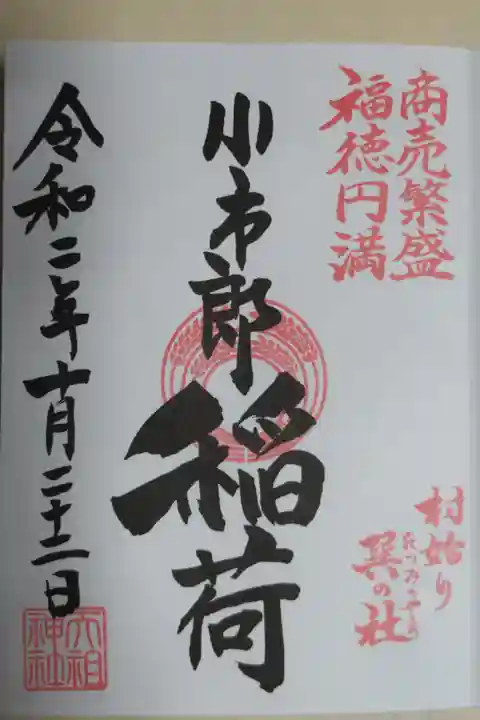 商売繁盛
福徳円満
村始り
巽の社
たつみのやしろ
小市郎稲荷
令和二年十月二十二日
六祖
神社